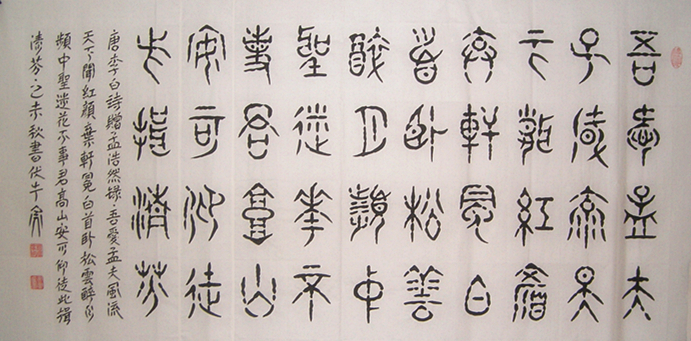 吾愛孟夫
子風流天
下聞紅顔
棄軒冕白
首卧松雲
醉月頻中
聖迷花不
事君高山
安可仰徒
此揖清芬
唐李白詩贈孟浩然錄吾愛孟夫風流
天下聞紅顔棄軒冕白首卧松雲醉月
頻中聖迷花不事君高山安可仰徒此揖
清芬乙未秋書伏牛